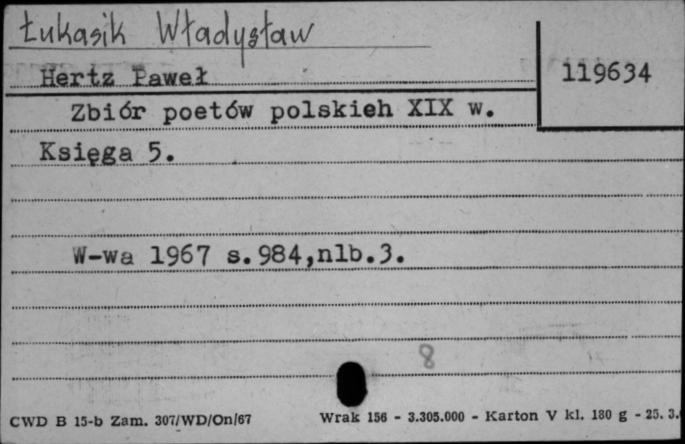 Łukasik Władysław
Hertz Paweł
119634
Zbiór poetów polskieh XIX w.
Księga 5.
W-wa 1967 s.984,nlb.3.
8
CWD B 15-b Zam. 307/WD/On/67
Wrak 156 - 3.305.000 - Karton V kl. 180 g - 25. 3.